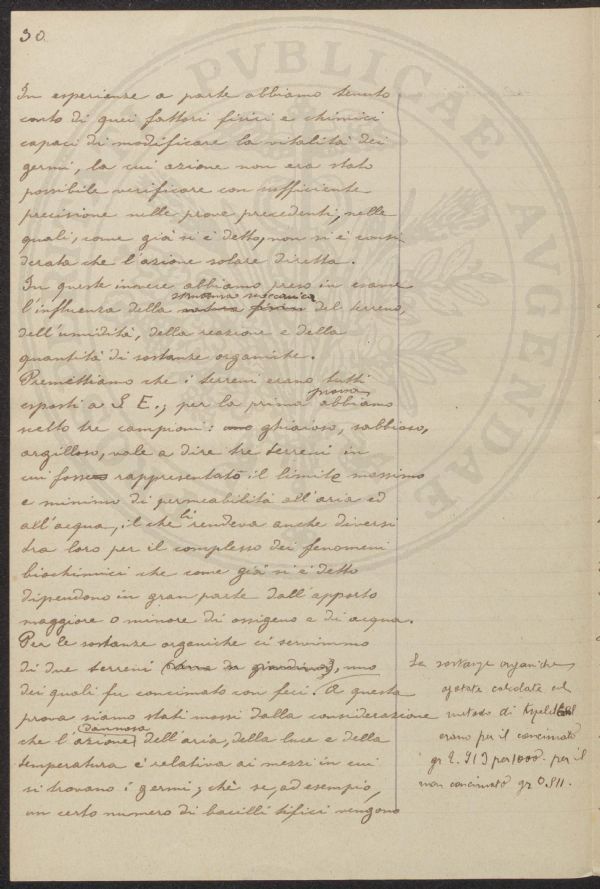 30
In esperienze a parte abbiamo tenuto
conto di quei fattori fisici e chimici
capaci di modificare la vitalità dei
germi, la cui azione non era stato
possibile verificare con sufficiente
precisione nelle prove precedenti, nelle
quali, come già si è detto, non si è consi
derata che l'azione solare diretta.
In queste invece abbiamo preso in esame
struttura meccanica
l'influenza della natura fisica del terreno,
dell'umidità, della reazione e della
quantità di sostanze organiche.
Premettiamo che i terreni erano tutti
prova
esposti a S E.; per la prima abbiamo
scelto tre campioni: uno ghiaioso, sabbioso,
argilloso, vale a dire tre terreni in
cui fosse rappresentato il limite massimo
e minimo di permeabilità all'aria ed
all'acqua, il che li rendeva anche diversi
tra loro per il complesso dei fenomeni
biochimici che come già si è detto
dipendono in gran parte dall'apporto
maggiore o minore di ossigeno e di acqua.
Per le sostanze organiche ci servimmo
di due terreni (terra da giardino), uno
dei quali fu concimato con feci. A questa
prova siamo stati mossi dalla considerazione
dannosa
che l'azione dell'aria, della luce e della
temperatura è relativa ai mezzi in cui
si trovano i germi, chè se, ad esempio,
un certo numero di bacilli tifici vengono
Le sostanze organiche
azotate calcolate col
metodo di Kjeldhal
erano per il concimato
gr 2.919 per 1000. per il
non concimato gr 0.811.
PVBLICAE
AVGENDAE